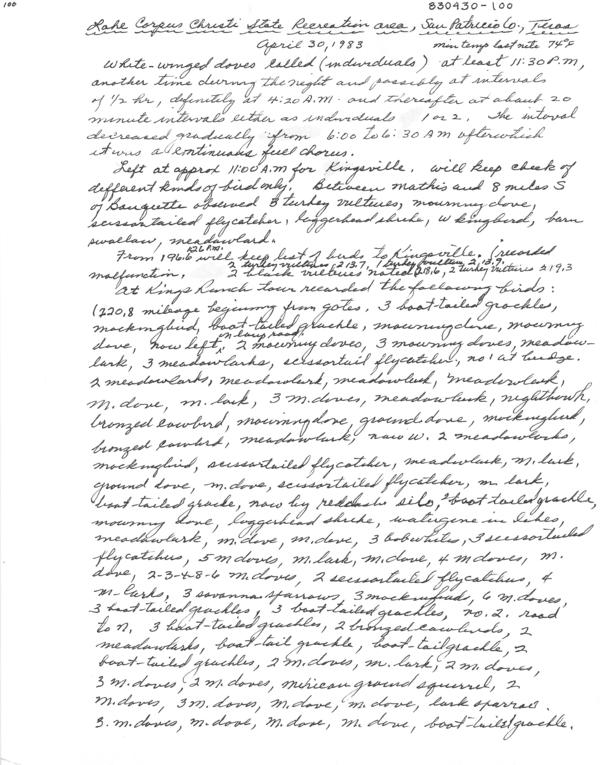 100
830430-100
Lake Corpus Christi State Recreation area, San Patricio Co., Texas
April 30, 1983 min temp last nite 74°F
White-winged doves called (individuals) at least 11:30 P.M,
another time during the night and possibly at intervals
of ½ hr, definitely at 4:20 A.M. and thereafter at about 20
minute intervals either as individuals 1 or 2. The interval
decreased gradually from 6:00 to 6:30 AM after which
it was a continuous full chorus.
Left at approx 11:00 A.M for Kingsville. Will keep check of
different kinds of bird only. Between Mathis and 8 miles S
of Banquette observed 3 turkey vultures, mourning dove,
scissortailed flycatcher, loggerhead shrike, W kingbird, barn
swallow, meadowlark.
From 196.6 will keep list of birds to Kingsville. (recorded
malfunction. 2 turkey vultures 213.7, 213.9,
2 black vultures noted 218.6, 2 turkey vultures 219.3
At Kings Ranch tour recorded the following birds:
(220.8 mileage beginning from gates. 3 boat-tailed grackles,
mockingbird, boat-tailed grackle, mourning dove, mourning
dove, now left, on loop road, 2 mourning doves, 3 mourning doves, meadow-
lark, 3 meadowlarks, scissortail flycatcher, no 1 at bridge.
2 meadowlarks, meadowlark, meadowlark, meadowlark,
M. dove, m. lark, 3 M. doves, meadowlark, nighthawk,
bronzed cowbird, mourning dove, ground dove, mockingbird,
bronzed cowbird, meadowlark, now w. 2 meadowlarks,
mockingbird, scissortailed flycatcher, meadowlark, M. lark,
ground dove, m. dove, scissortailed flycatcher, m. lark,
boat-tailed grackle, now by silo, 2 boat tailed grackle,
mourning dove, loggerhead shrike,
meadowlark, m. dove, m. dove, 3 bobwhites, 3 scissortailed
flycatchers, 5 m doves, m. lark, m. dove, 4 m doves, m.
dove, 2-3-4-8-6 m. doves, 2 scissortailed flycatchers, 4
m-larks, 3 savanna sparrows, 3 mockingbirds, 6 M. doves,
3 boat-tailed grackles, 3 boat-tailed grackles, no. 2. road
to n. 3 boat-tailed grackles, 2 bronzed cowbirds, 2
meadowlarks, boat-tail grackle, boat-tail grackle, 2
boat-tailed grackles, 2 m. doves, m. lark, 2 m. doves,
3 m. doves, 2 m. doves, mexican ground squirrel, 2
m. doves, 3 m. doves, m. dove, m. dove, lark sparrow.
3. m. doves, m. dove, m. dove, m. dove, boat-tailed grackle.